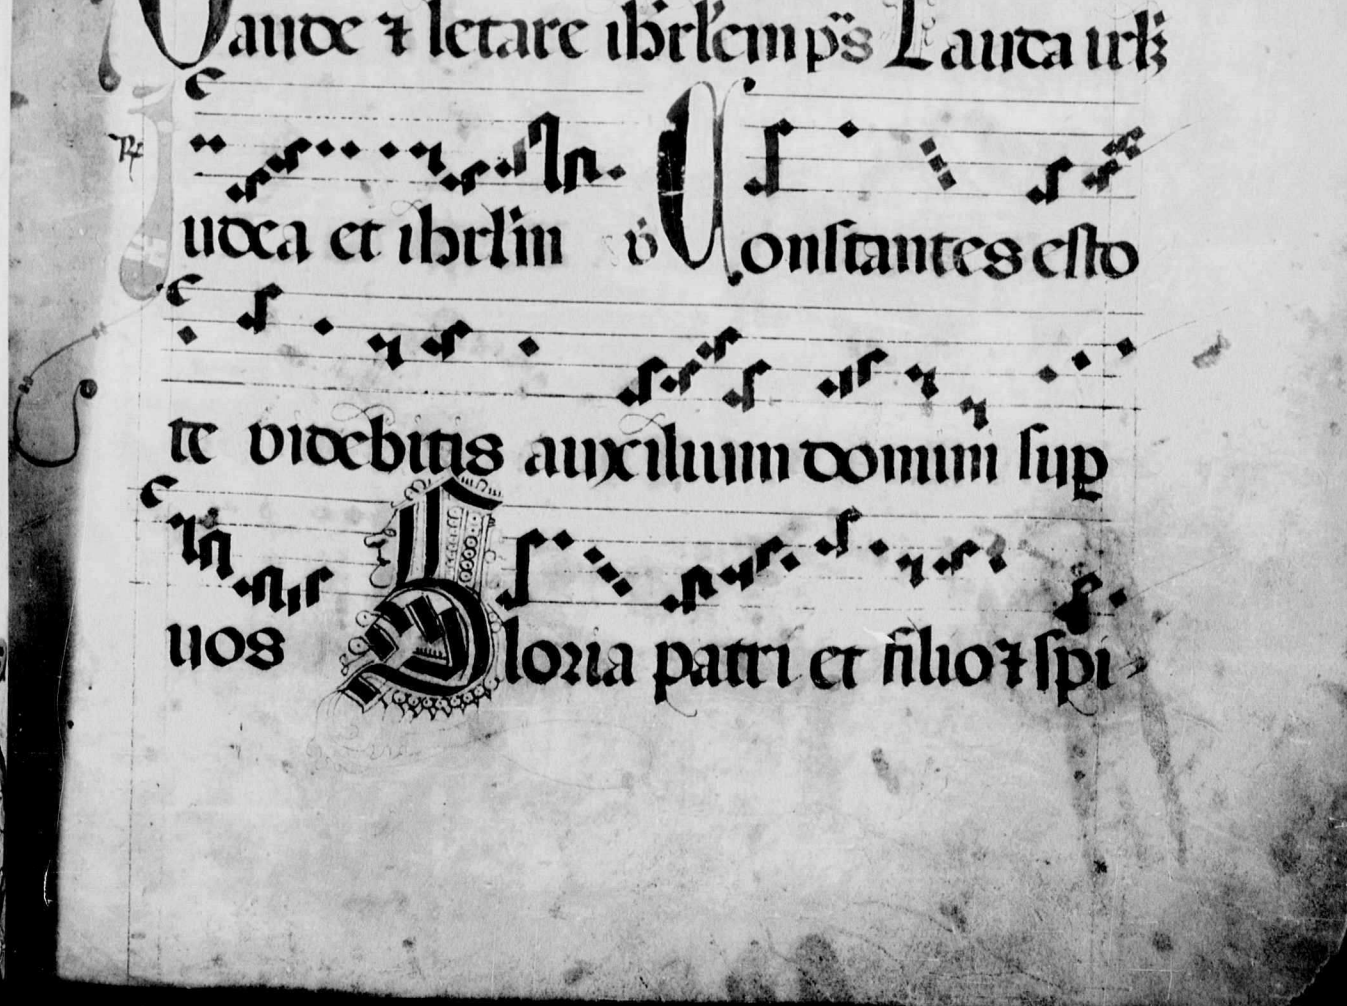 Gaude ⁊ letare ihrłem p̄s Lauda irłꝫ
R̷ Iudea et ihrłm v̇ Constantes esto
te videbitis auxilium domini suꝑ
uos Gloria patri et filio ⁊ spi